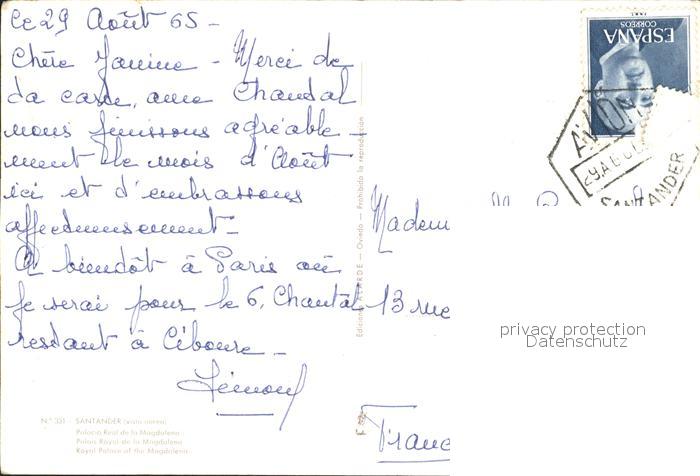 le 29 Août 65 -
Chère Janine - Merci de
ta carte, avec Chantal
nous finissons agréable -
ment le mois d'Août
ici et t'embrassons
affectueusement -
A bientôt à Paris où
je serai pour le 6, Chantal
restant à Ciboure -
N.º 331 - SANTANDER (vista aérea)
Palacio Real de la Magdalena
Palais Royal de la Magdalena
Royal Palace of the Magdalena
Ediciones ALARDE - Oviedo - Prohibida la reproducción
ESPAÑA
CORREOS
AVION
SANTANDER
Madem
13 rue
Franc
privacy protection
Datenschutz